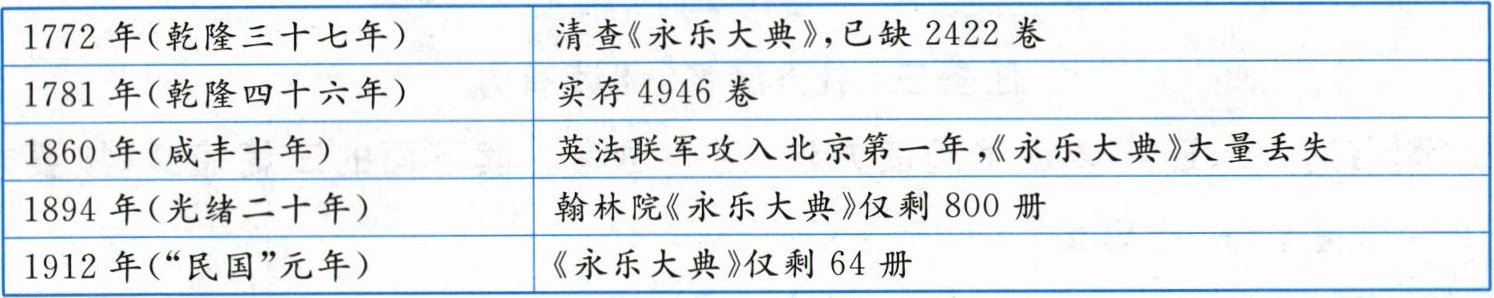 1772 年(乾隆三十七年) 清查《永乐大典》,已缺 2422 卷
1781 年(乾隆四十六年) 实存 4946 卷
1860 年(咸丰十年) 英法联军攻入北京第一年,《永乐大典》大量丢失
1894 年(光绪二十年) 翰林院《永乐大典》仅剩 800 册
1912 年(“民国”元年) 《永乐大典》仅剩 64 册